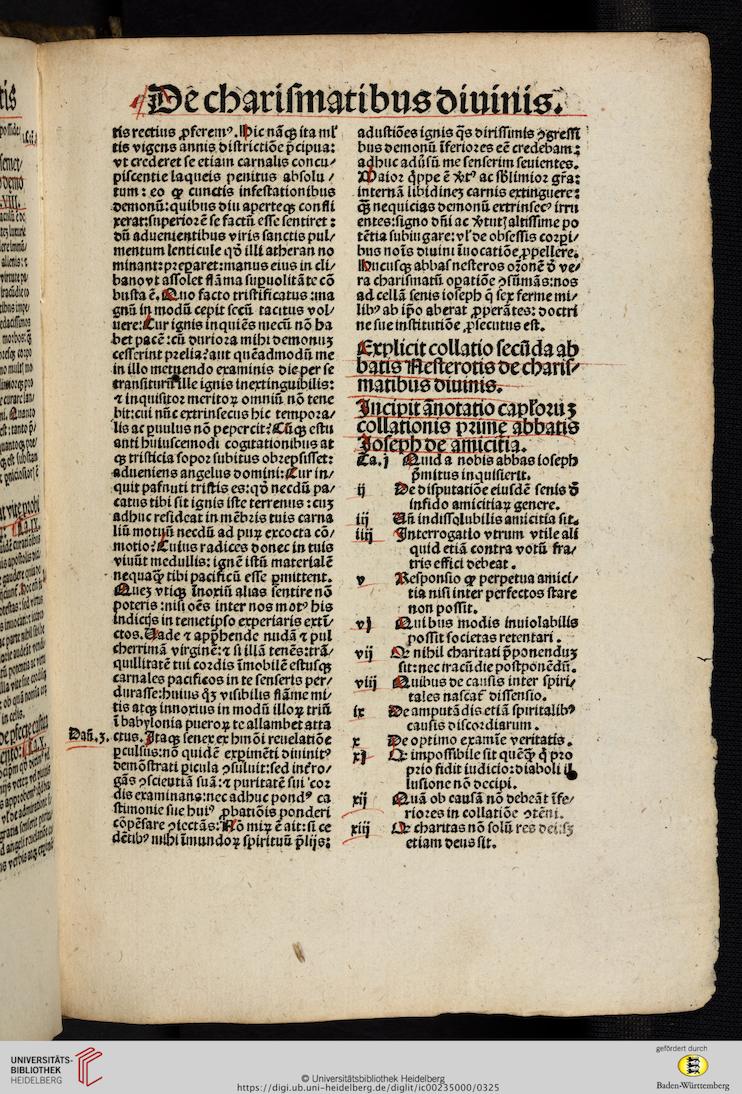 De chariſmatibus diuinis.
tis rectius ꝓferemꝰ. Hic nāqꝫ ita ml̓
tis vigens annis diſtrictiōe p̄cipua:
vt crederet ſe etiam carnalis concu/
piſcentie laqueis penitus abſolu/
tum: eo ꝙ cunctis infeſtationibus
demonū: quibus diu aperteqꝫ confli
xerat: ſuperiorē ſe factū eſſe ſentiret:
dū aduenientibus viris ſanctis pul/
mentum lenticule qd̄ illi atheran no
minant: preparet: manus eius in cli/
bano vt aſſolet flāma ſupuolitāte cō
buſta ē. Quo facto triſtificatus ma
gnū in modū cepit ſecū tacitus vol/
uere: Cur ignis inquiēs mecū nō ha
bet pacē: cū duriora mihi demonuꝫ
ceſſerint prelia? aut quēadmodū me
in illo metuendo examinis die per ſe
tranſiturū ille ignis inextinguibilis:
⁊ inquiſitor meritoꝝ omniū nō tene
bit: cui nūc extrinſecus hic tempora/
lis ac puulus nō pepercit? Cūqꝫ eſtu
anti huiuſcemodi cogitationibus at
qꝫ triſticia ſopor ſubitus obrepſiſſet:
adueniens angelus domini: Cur in/
quit pafnuti triſtis es: qd̄ necdū pa/
catus tibi ſit ignis iſte terrenus: cuꝫ
adhuc reſideat in mēbris tuis carna
liū motuū necdū ad puꝝ excocta cō/
motio? Cuius radices donec in tuis
viuūt medullis: ignē iſtū materialē
nequaqꝫ tibi pacificū eſſe ꝑmittent.
Quez vtiqꝫ īnoxiū alias ſentire nō
poteris: niſi oēs inter nos motꝰ his
indicijs in temetipſo experiaris extī/
ctos. Uade ⁊ app̄hende nudā ⁊ pul
cherrimā virginē: ⁊ ſi illā tenēs: trā/
quillitatē tui cordis īmobilē eſtuſqꝫ
carnales pacificos in te ſenſeris per/
duraſſe: huius qꝫ viſibilis flāme mi/
tis atqꝫ innoxius in modū illoꝝ triū
ī babylonia pueroꝝ te allambet atta
Dañ.3. ctus. Itaqꝫ ſenex ex hmōi reuelatiōe
ꝑculſus: nō quidē expimēti diuinitꝰ
demōſtrati picula ꝯſuluit: ſed int̓ro/
gās ꝯſcientiā ſuā: ⁊ puritatē ſui cor
dis examinans: nec adhuc pondꝰ ca
ſtimonie ſue huiꝰ ꝓbatiōis ponderi
cōpēſare ꝯiectās: Nō miꝝ ē ait: ſi ce
dētibꝰ mihi īmundoꝝ ſpirituū p̄lijs:
aduſtiōes ignis q̄s diriſſimis ꝯgreſſi
bus demonū īferiores eē credebam:
adhuc aduſū me ſenſerim ſeuientes.
Maior q̄ppe ē ꝟtꝰ ac ſb̓limior gr̄a:
internā libidineꝫ carnis extinguere:
qꝫ nequicias demonū extrinſecꝰ irru
entes: ſigno dn̄i ac ꝟtutꝫ altiſſime po
tētia ſubiugare: vl̓ de obſeſſis corpi/
bus noīs diuini īuocatiōe ꝓpellere.
Hucuſqꝫ abbaſ neſteros oꝛonē d̄ ve/
ra chariſmatū opatiōe ꝯſūmās: nos
ad cellā ſenis ioſeph q̄ ſex ferme mi/
libꝰ ab ip̄o aberat ꝓperātes: doctri
ne ſue inſtitutiōe ꝓſecutus eſt.
Explicit collatio ſecūda ab
batis Neſterotis de chariſ/
matibus diuinis.
Incipit ānotatio capl̓oruꝫ
collationis prime abbatis
Joſeph de amicitia.
Ca.j Quid a nobis abbas ioſeph
p̄mitus inquiſierit.
ij De diſputatiōe eiuſdē ſenis d̄
infido amicitiaꝝ genere.
iij Un̄ indiſſolubilis amicitia ſit.
iiij Interrogatio vtrum vtile ali
quid etiā contra votū fra/
tris effici debeat.
v Reſponſio ꝙ perpetua amici/
tia niſi inter perfectos ſtare
non poſſit.
vj Quibus modis inuiolabilis
poſſit ſocietas retentari.
vij Qꝫ nihil charitati p̄ponenduꝫ
ſit: nec iracūdie poſtponēdū.
viij Quibus de cauſis inter ſpiri/
tales naſcat̄ diſſenſio.
ix De amputādis etiā ſpiritalibꝰ
cauſis diſcordiarum.
x De optimo examīe veritatis.
xj Qꝫ impoſſibile ſit quēqꝫ q̄ pro
prio fidit iudicio: diaboli il
luſione nō decipi.
xij Quā ob cauſā nō debeāt īfe/
riores in collatiōe ꝯtēni.
xiij Qꝫ charitas nō ſolū res dei: ſꝫ
etiam deus ſit.
UNIVERSITÄTS-
BIBLIOTHEK
HEIDELBERG
© Universitätsbibliothek Heidelberg
https://digi.ub.uni-heidelberg.de/diglit/ic00235000/0325
gefördert durch
Baden-Württemberg